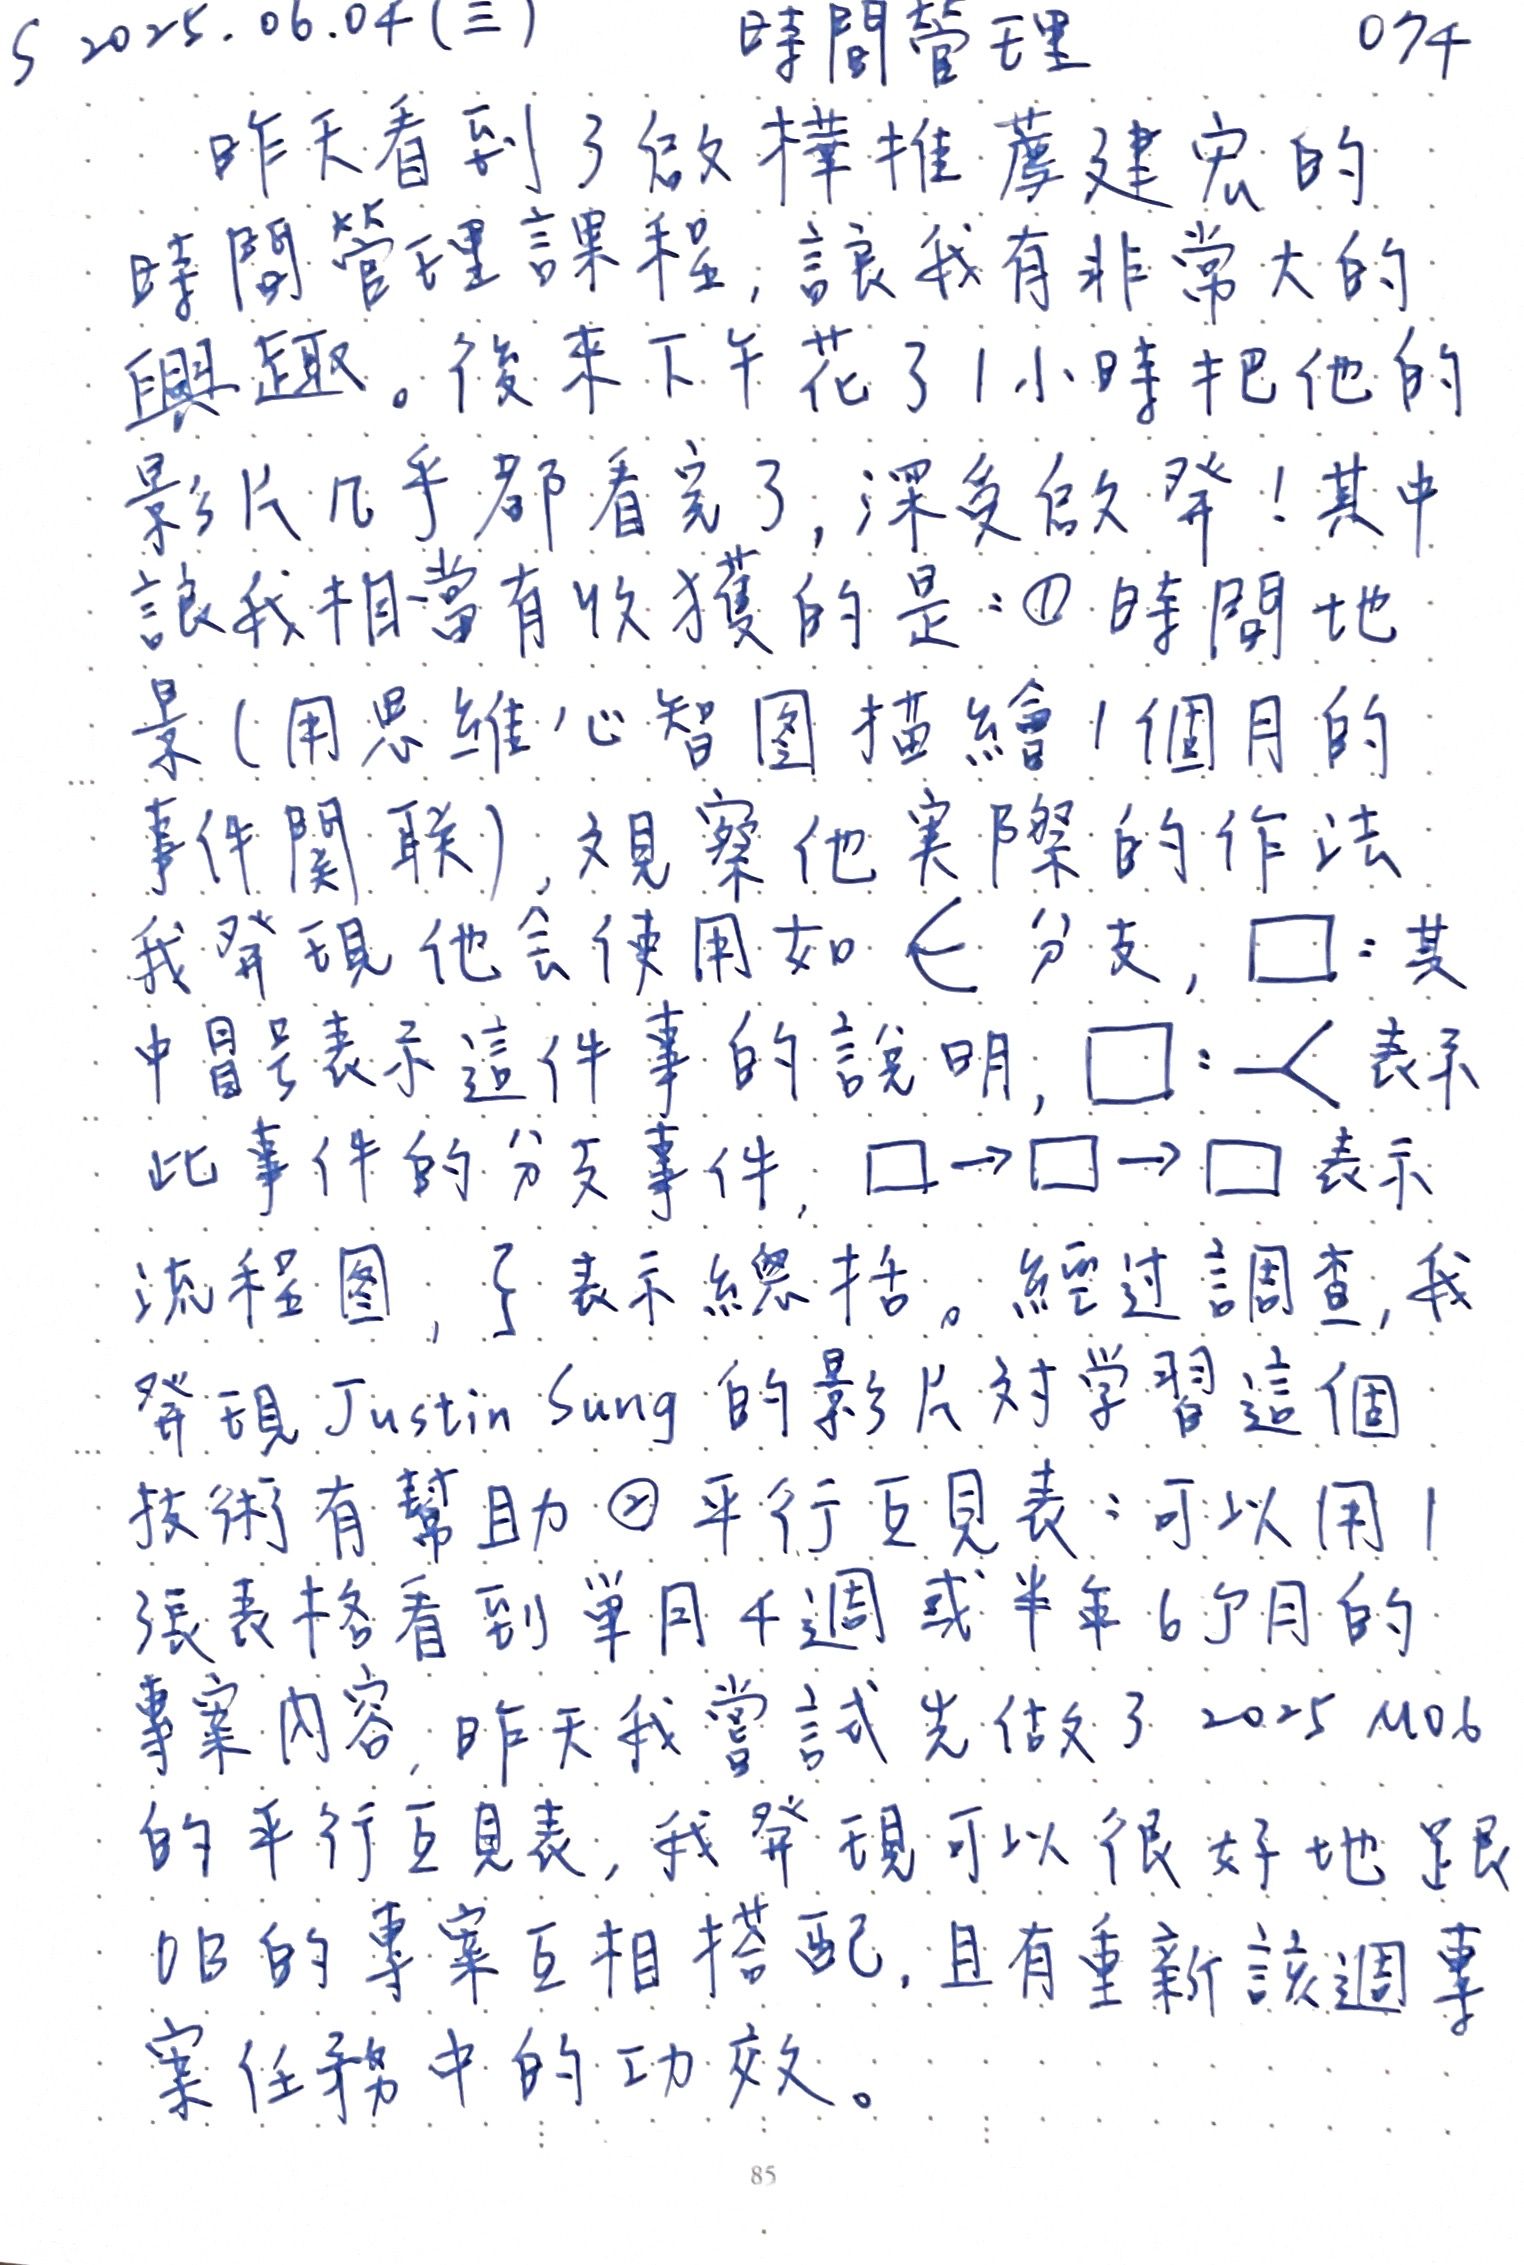 S 2025.06.04(三) 時間管理 074
昨天看到了啟樺推薦建宏的
時間管理課程,讓我有非常大的
興趣。後來下午花了1小時把他的
影片几乎都看完了,深受啟發!其中
讓我相當有收獲的是:① 時間地
景(用思維心智図描繪1個月的
事件関联),观察他実際的作法
我發現他会使用如 ∈ 分支, □:其
中冒号表示這件事的說明, □:—< 表示
此事件的分支事件, □→□→□ 表示
流程図, } 表示總括。經过調查,我
發現 Justin Sung 的影片对学習這個
技術有幫助 ② 平行互見表:可以用1
張表格看到単月4週或半年6个月的
專案內容,昨天我嘗試先做了 2025 M06
的平行互見表,我發現可以很好地跟
OB的專案互相搭配,且有重新該週專
案任務中的功效。
85